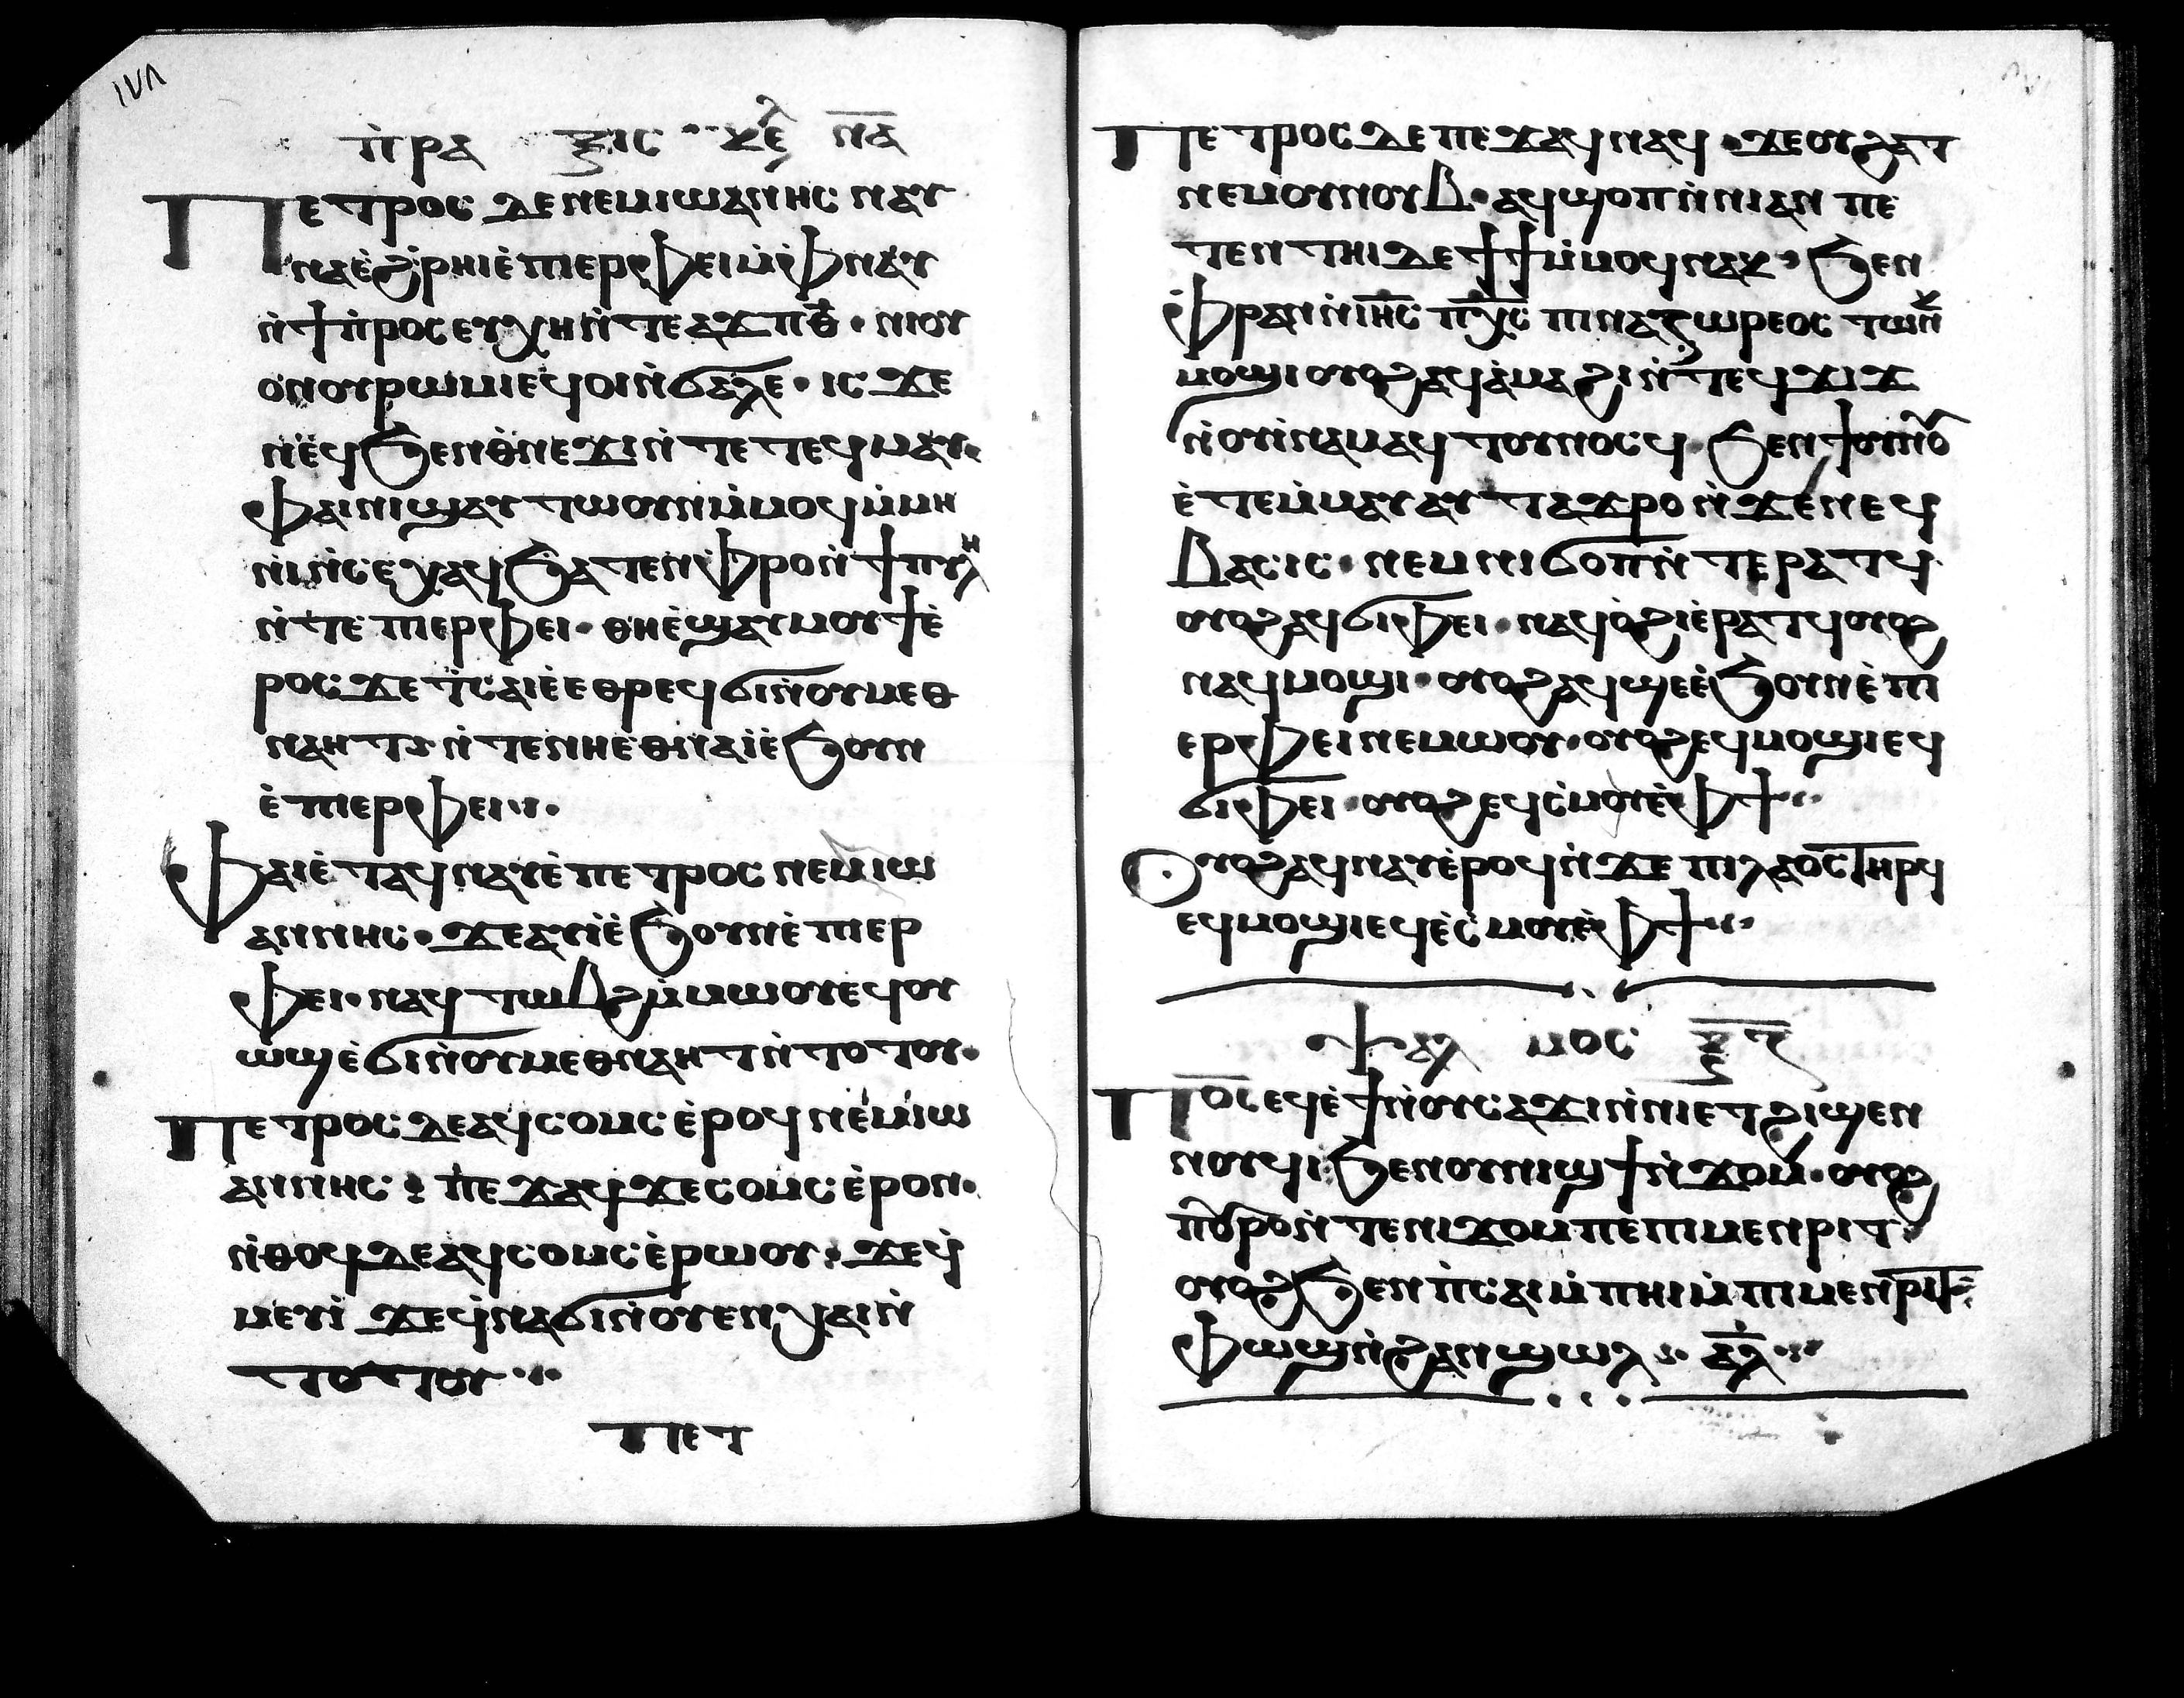 ١٧٨
ⲡ̀ⲣⲁ ⲝⲓⲥ ⲕⲉ̅ⲫ ⲛ̅ⲁ̅
Ⲡⲉⲧⲣⲟⲥ ⲇⲉ ⲛⲉⲙ ⲓⲱⲁⲛⲏⲥ ⲛⲁⲩ
ⲛⲁ ⲉ̀ϩ̀ⲣⲏⲓ ⲉ̀ⲡⲓⲉⲣⲫⲉⲓ ⲙ̀ⲫⲛⲁⲩ
ⲛ̀ϯⲡ̀ⲣⲟⲥⲉⲩⲭⲏ ⲛ̀ⲧⲉ ⲁϫⲡ ⲑ̅ · ⲛⲓⲟⲩ
ⲟⲛ ⲟⲩⲣⲱⲙⲓ ⲉϥⲟⲓ ⲛ̀ϭⲁⲗⲉ · ⲓⲥ ϫⲉ
ⲛ̀ⲉ̀ϥϧⲉⲛ ⲑ̀ⲛⲉϫⲓ ⲛ̀ⲧⲉ ⲧⲉϥⲙⲁⲩ ·
ⲫⲁⲓ ⲛⲓϣⲁⲩⲧⲱⲟⲩⲛ ⲙ̀ⲙⲟϥ ⲙ̀ⲙⲏ
ⲛⲓ ⲛ̀ⲥⲉⲭⲁϥ ϧⲁⲧⲉⲛ ⲫⲣⲟ ⲛ̀ϯⲡⲩⲗⲏ
ⲛ̀ⲧⲉ ⲡⲓⲉⲣⲫⲉⲓ · ⲑⲏ ⲉ̀ϣⲁⲩⲙⲟⲩϯ ⲉ̀
ⲣⲟⲥ ϫⲉ ϯⲥⲁⲓⲉ̀ ⲉⲑⲣⲉϥϭⲓ ⲛ̀ⲟⲩⲙⲉⲑ
ⲛⲁⲏⲧ ⲛ̀ⲧⲉⲛ ⲛⲏ ⲉⲑⲛⲁⲓ̀ ⲉ̀ϧⲟⲩⲛ
ⲉ̀ⲡⲓⲉⲣⲫⲉⲓ ·
Ⲫⲁⲓ ⲉ̀ⲧⲁϥⲛⲁⲩ ⲉ̀ⲡⲉⲧⲣⲟⲥ ⲛⲉⲙ ⲓⲱ
ⲁⲛⲛⲏⲥ · ϫⲉ ⲁⲩⲓ̀ ⲉ̀ϧⲟⲩⲛ ⲉ̀ⲡⲓⲉⲣ
ⲫⲉⲓ · ⲛⲁϥⲧⲱⲃϩ ⲙ̀ⲙⲱⲟⲩ ⲉϥⲟⲩ
ⲱϣ ⲉ̀ϭⲓ ⲛ̀ⲟⲩⲙⲉⲑⲛⲁⲏⲧ ⲛ̀ⲧⲟⲧⲟⲩ ·
Ⲡⲉⲧⲣⲟⲥ ⲇⲉ ⲁϥⲥⲟⲙⲥ ⲉ̀ⲣⲟϥ ⲛⲉⲙ ⲓⲱ
ⲁⲛⲛⲏⲥ · ⲡⲉϫⲁϥ ϫⲉ ⲥⲟⲙⲥ ⲉ̀ⲣⲟⲛ ·
ⲛ̀ⲑⲟϥ ⲇⲉ ⲁϥⲥⲟⲙⲥ ⲉ̀ⲣⲱⲟⲩ · ϫⲉ ϥ̀
ⲙⲉⲩⲓ̀ ϫⲉ ϥ̀ⲛⲁϭⲓ ⲛ̀ⲟⲩⲉⲛⲭⲁⲓ ⲛ̀
ⲧⲟⲧⲟⲩ ·
ⲡⲉⲧ
Ⲡⲉⲧⲣⲟⲥ ⲇⲉ ⲡⲉϫⲁϥ ⲛⲁϥ · ϫⲉ ⲟⲩϩⲁⲧ
ⲛⲉⲙ ⲟⲩⲛⲟⲩⲃ · ⲁϥϣⲟⲡ ⲛ̀ⲛⲓ ⲁⲛ ⲡⲉ
ⲧⲉⲛⲧⲏⲓ ⲇⲉ ϯϯ ⲙ̀ⲙⲟϥ ⲛⲁⲕ · ϧⲉⲛ
ⲫⲣⲁⲛ ⲛ̀ⲓⲏ̅ⲥ̅ ⲡⲭ̅ⲥ̅ ⲡⲓⲛⲁⲍⲱⲣⲉⲟⲥ ⲧⲱⲛⲕ
ⲙⲟϣⲓ ⲟⲩⲟϩ ⲁϥⲁ̀ⲙⲁϩⲓ ⲛ̀ⲧⲉϥϫⲓϫ
ⲛ̀ⲟⲩⲓ̀ⲛⲁⲙ ⲁϥⲧⲟⲩⲛⲟⲥϥ · ϧⲉⲛ ϯⲟⲩⲛⲟⲩ
ⲉ̀ⲧⲉⲙ̀ⲙⲁⲩ ⲁⲩⲧⲁϫⲣⲟ ⲛ̀ϫⲉ ⲛⲉϥ
ⲃⲁⲥⲓⲥ · ⲛⲉⲙ ⲛⲓϭⲟⲡ ⲛ̀ⲧⲉ ⲣⲁⲧϥ
ⲟⲩⲟϩ ⲁϥϭⲓⲫⲉⲓ · ⲛⲁϥⲟ̀ϩⲓ ⲉ̀ⲣⲁⲧϥ ⲟⲩⲟϩ
ⲛⲁϥⲙⲟϣⲓ · ⲟⲩⲟϩ ⲁϥϣⲉ ⲉ̀ϧⲟⲩⲛ ⲉ̀ⲡⲓ
ⲉⲣⲫⲉⲓ ⲛⲉⲙⲱⲟⲩ · ⲟⲩⲟϩ ⲉϥⲙⲟϣⲓ ⲉϥ
ϭⲓⲫⲉⲓ · ⲟⲩⲟϩ ⲉϥⲥ̀ⲙⲟⲩ ⲉ̀ⲫϯ ·
Ⲟⲩⲟϩ ⲁϥⲛⲁⲩ ⲉ̀ⲣⲟϥ ⲛ̀ϫⲉ ⲡⲓⲗⲁⲟⲥ ⲧⲏⲣϥ
ⲉϥⲙⲟϣⲓ ⲉϥⲉ̀ⲥ̀ⲙⲟⲩ ⲉ̀ⲫϯ ·
ⲯⲁⲗ ⲙⲟⲥ ⲝ̅ⲍ̅
Ⲡⲟ̅ⲥ̅ ⲉϥⲉ̀ϯ ⲛ̀ⲟⲩⲥⲁϫⲓ ⲛ̀ⲛⲓⲉⲧϩⲓϣⲉⲛ
ⲛⲟⲩϥⲓ · ϧⲉⲛ ⲟⲩⲛⲓϣϯ ⲛ̀ϫⲟⲙ · ⲟⲩⲟϩ
ⲡⲟⲩⲣⲟ ⲛ̀ⲧⲉ ⲛⲓϫⲟⲙ ⲡⲉ ⲡⲓⲙⲉⲛⲣⲓⲧ
ⲟⲩⲟϩ ϧⲉⲛ ⲡ̀ⲥⲁⲓ ⲙ̀ⲡⲏⲓ ⲙ̀ⲡⲓⲙⲉⲛⲣⲓⲧ
ⲫⲱϣ ⲛ̀ϩⲁⲛϣⲱⲗ · ⲁ̅ⲗ̅ ·